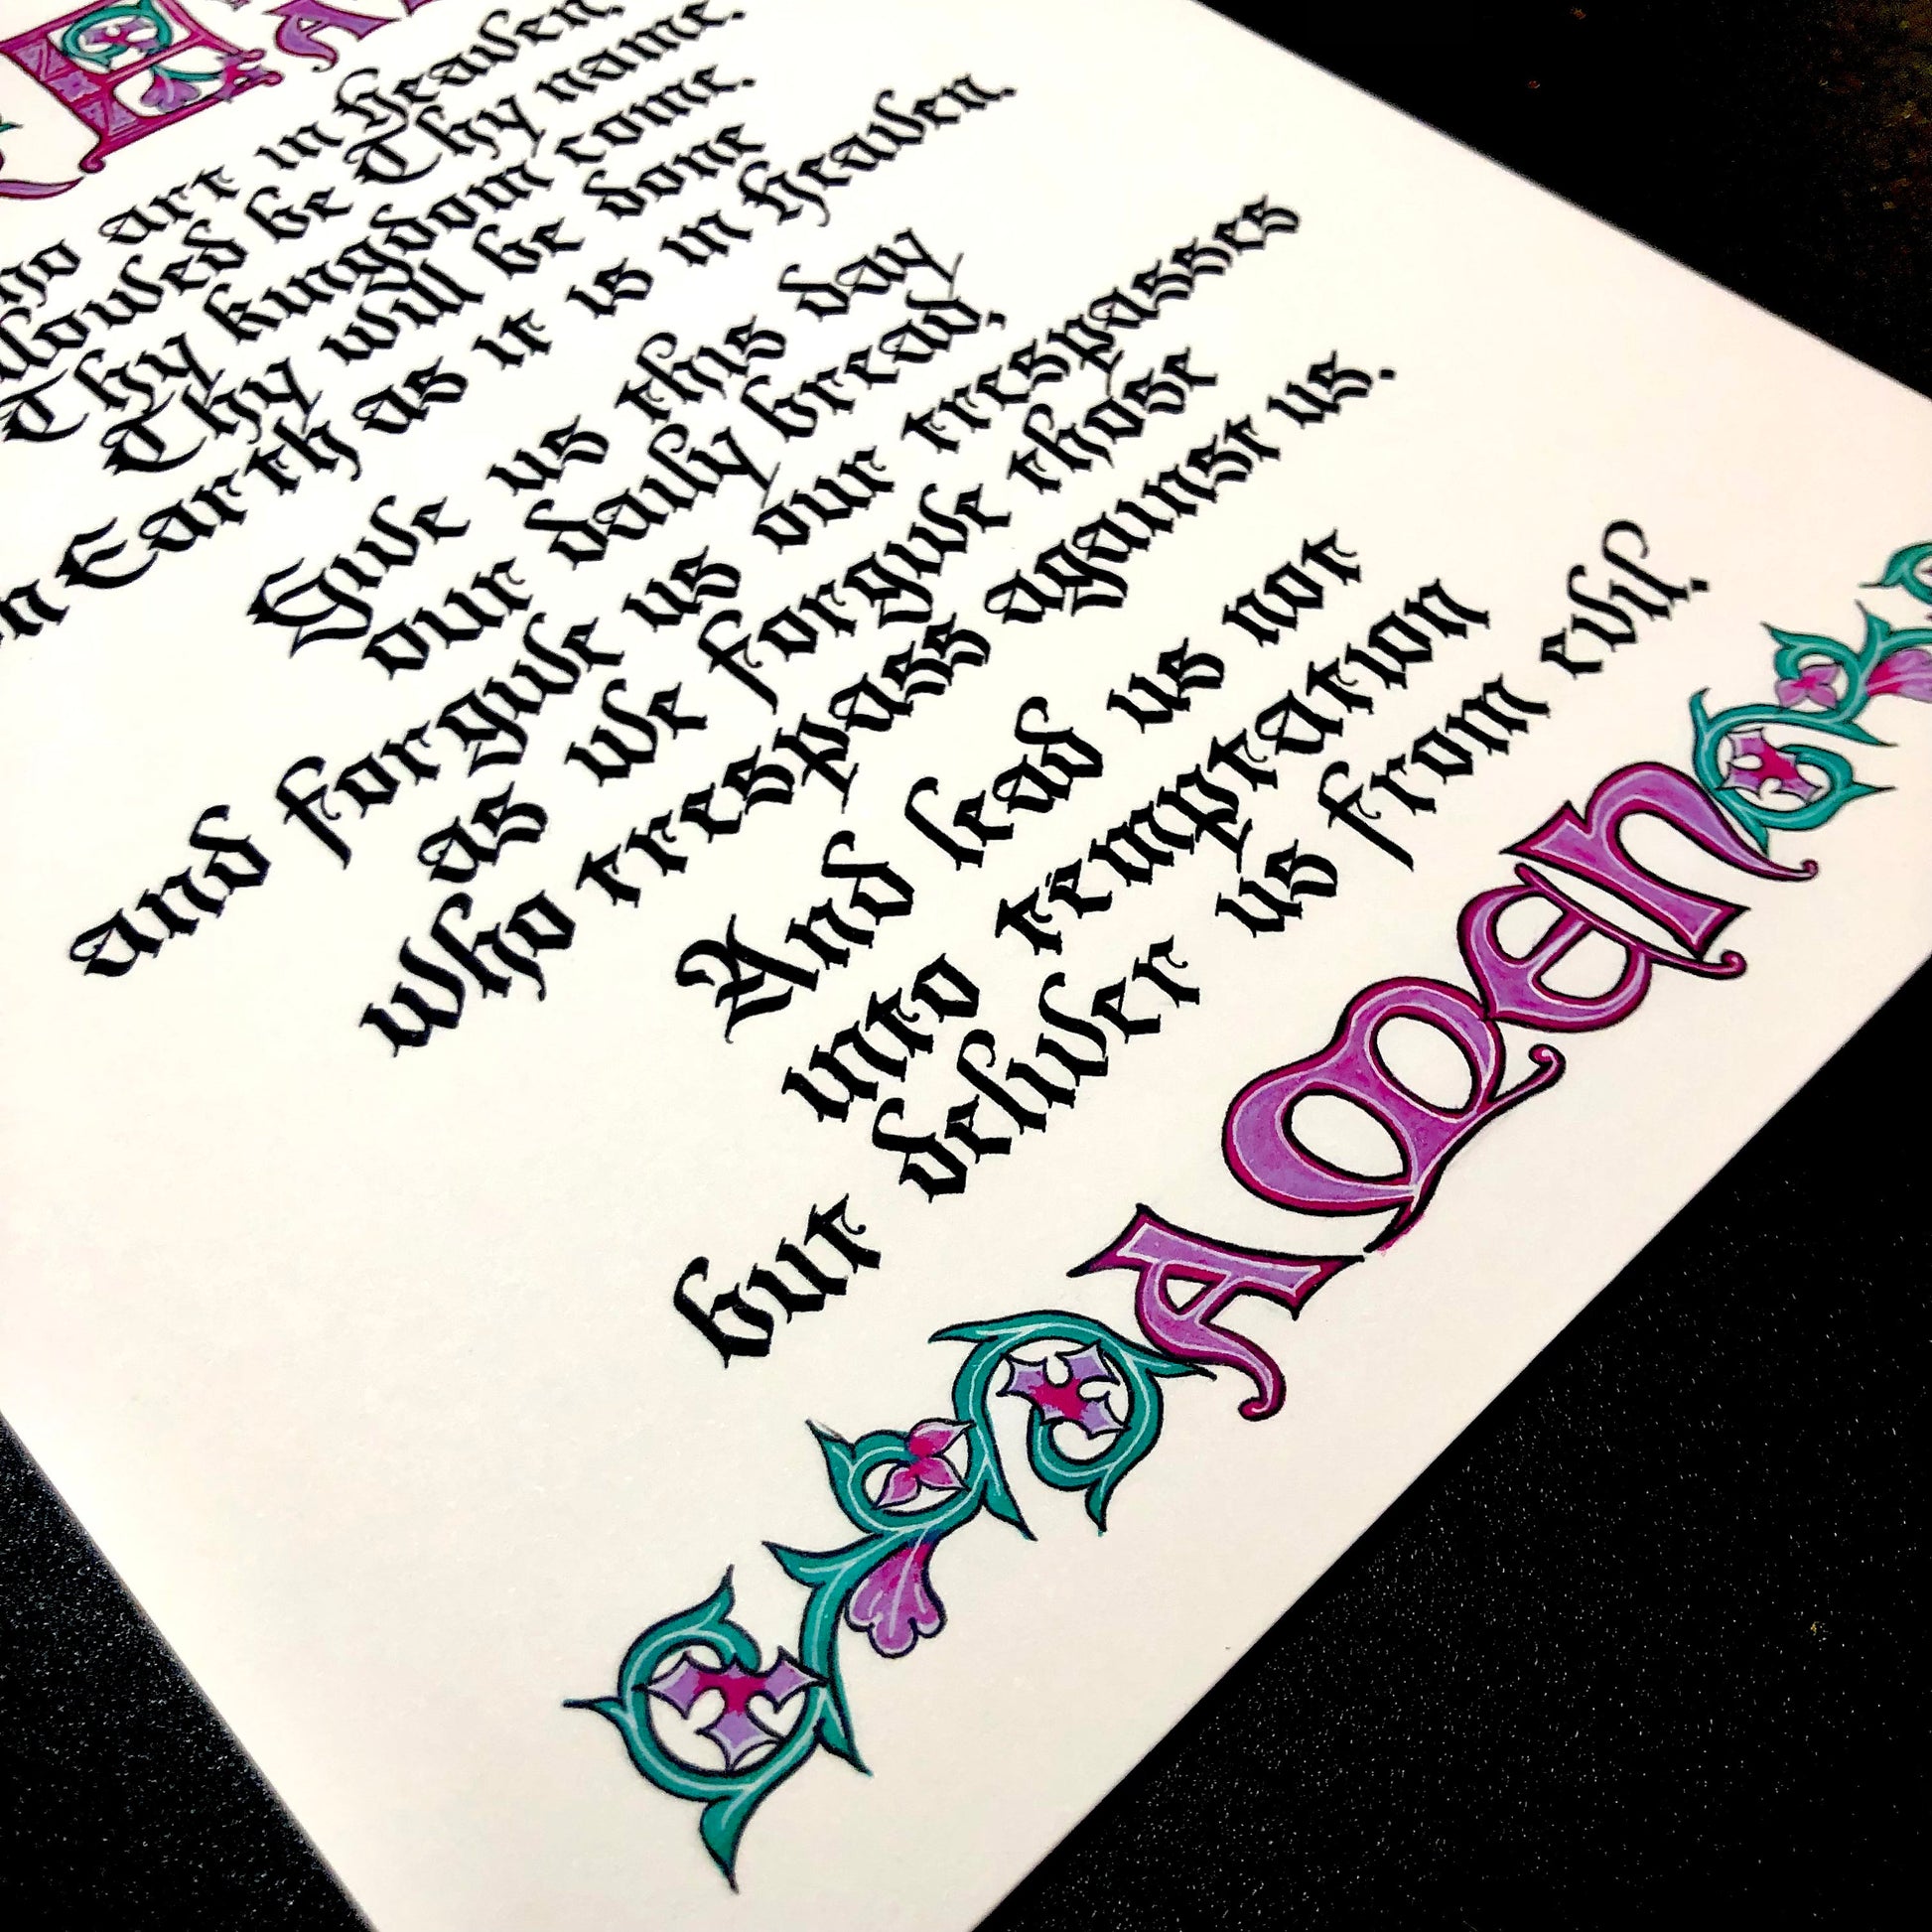 art in Heaven,
be Thy name.
Thy kingdom come.
Thy will be done
Earth as it is in Heaven.
Give us this day
our daily bread,
and forgive us our trespasses
as we forgive those
who trespass against us.
And lead us not
unto temptation
but deliver us from evil.
Amen